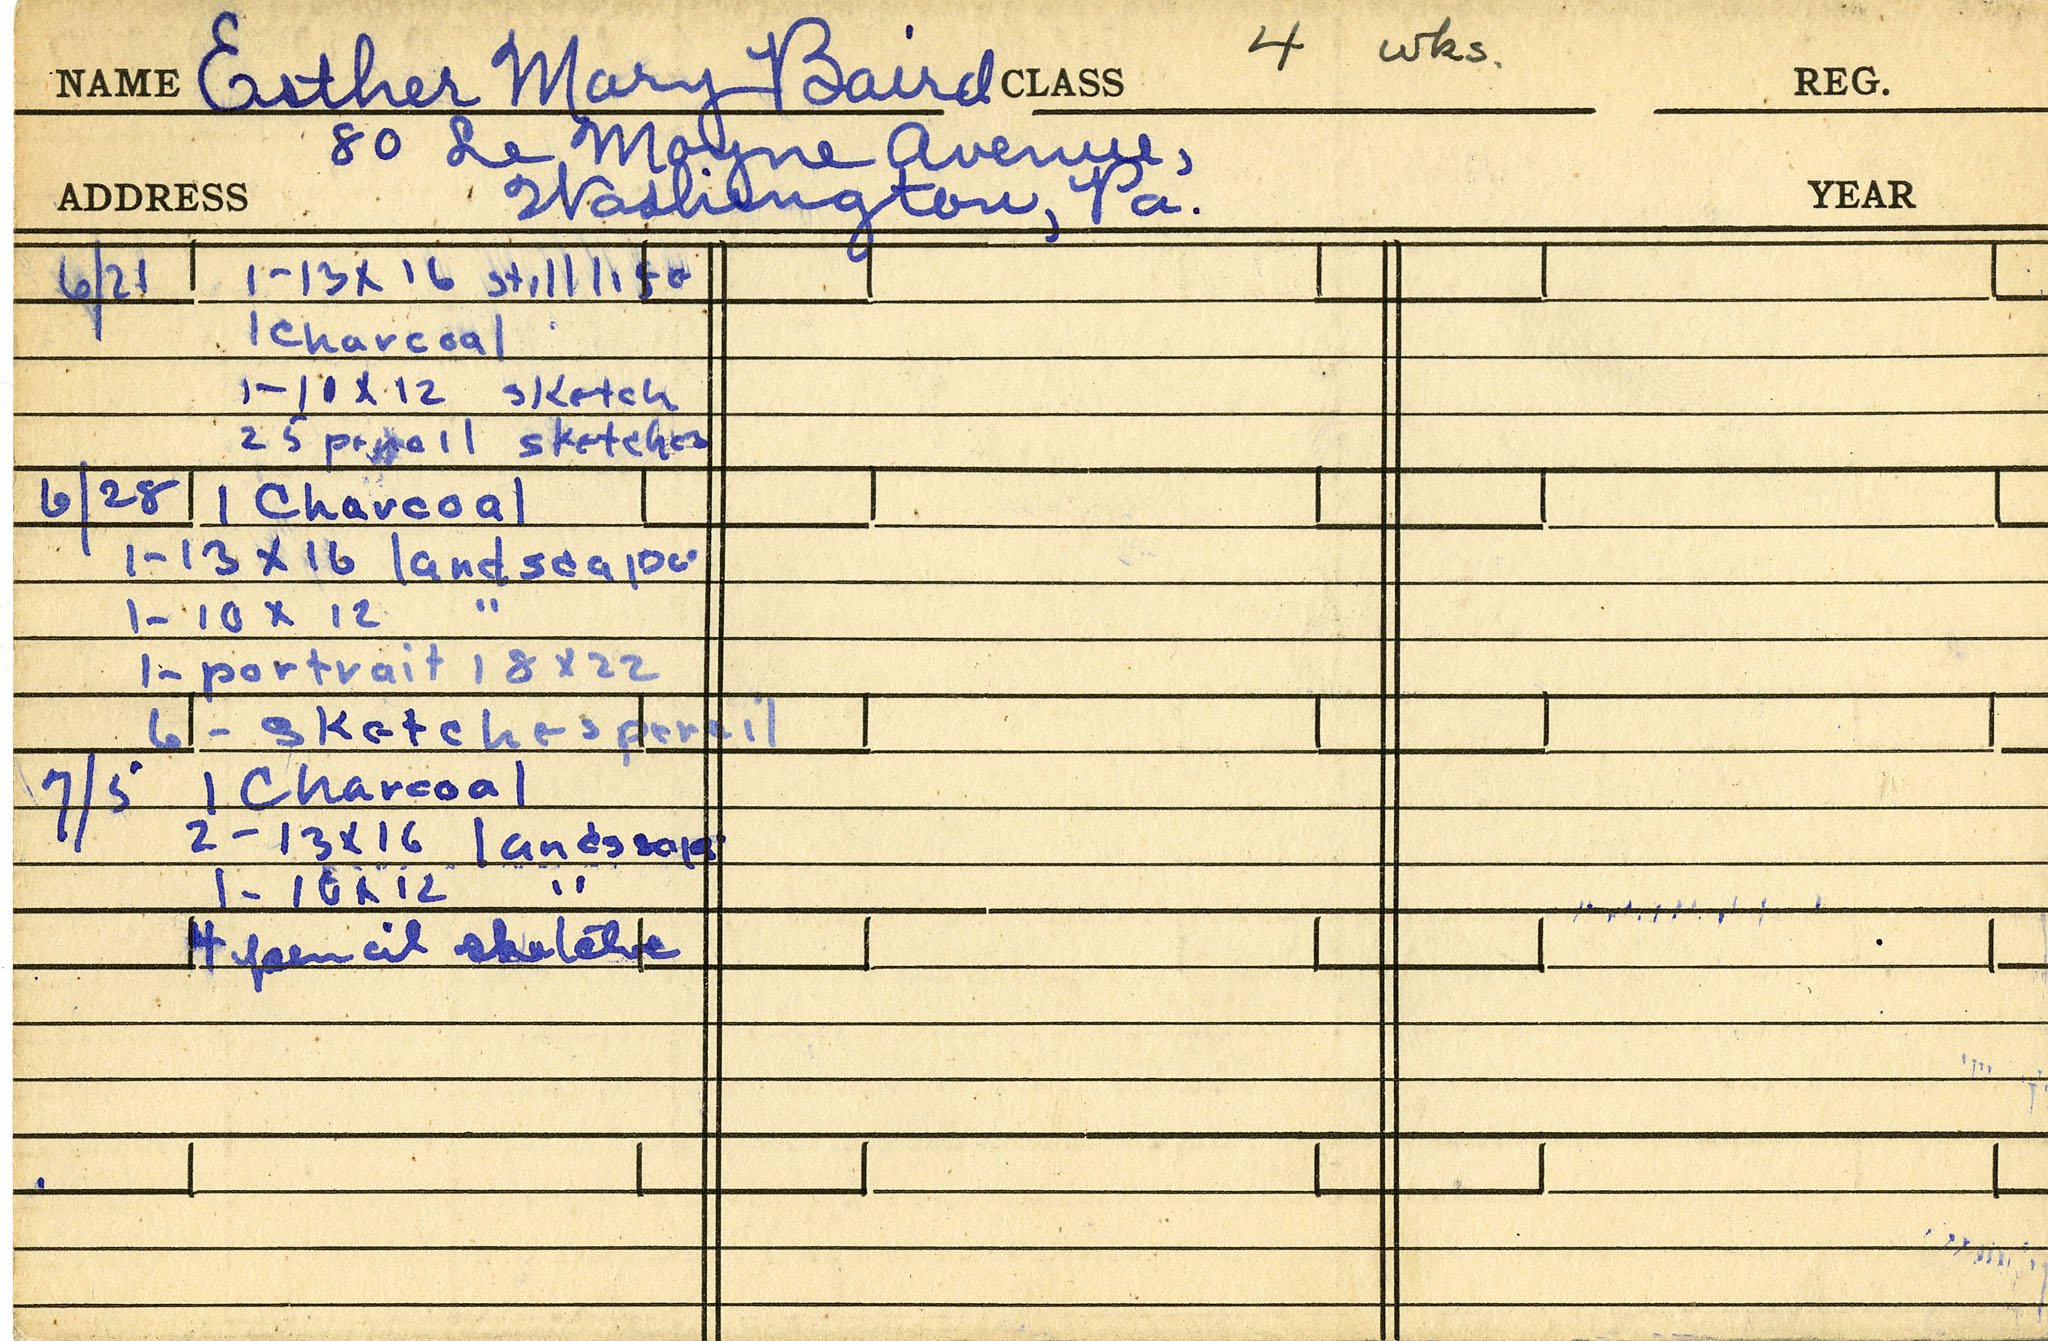 NAME Esther Mary Baird CLASS 4 wks. REG.
80 Le Moyne Avenue,
ADDRESS Washington, Pa. YEAR
6/21 1-13 x 16 still life
1 Charcoal
1-10 x 12 sketch
25 pencil sketches
6/28 1 Charcoal
1-13 x 16 landscape
1-10 x 12 "
1- portrait 18 x 22
6 - sketches pencil
7/5 1 Charcoal
2-13 x 16 landscape
1-10 x 12 "
4 pencil sketches